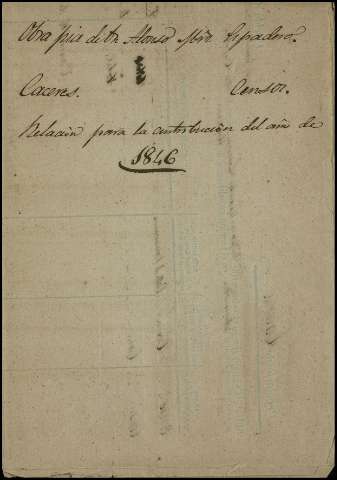 Obra pia de Dn. Alonso Espadero.
Caceres. Censos.
Relación para la contribución del año de
1846